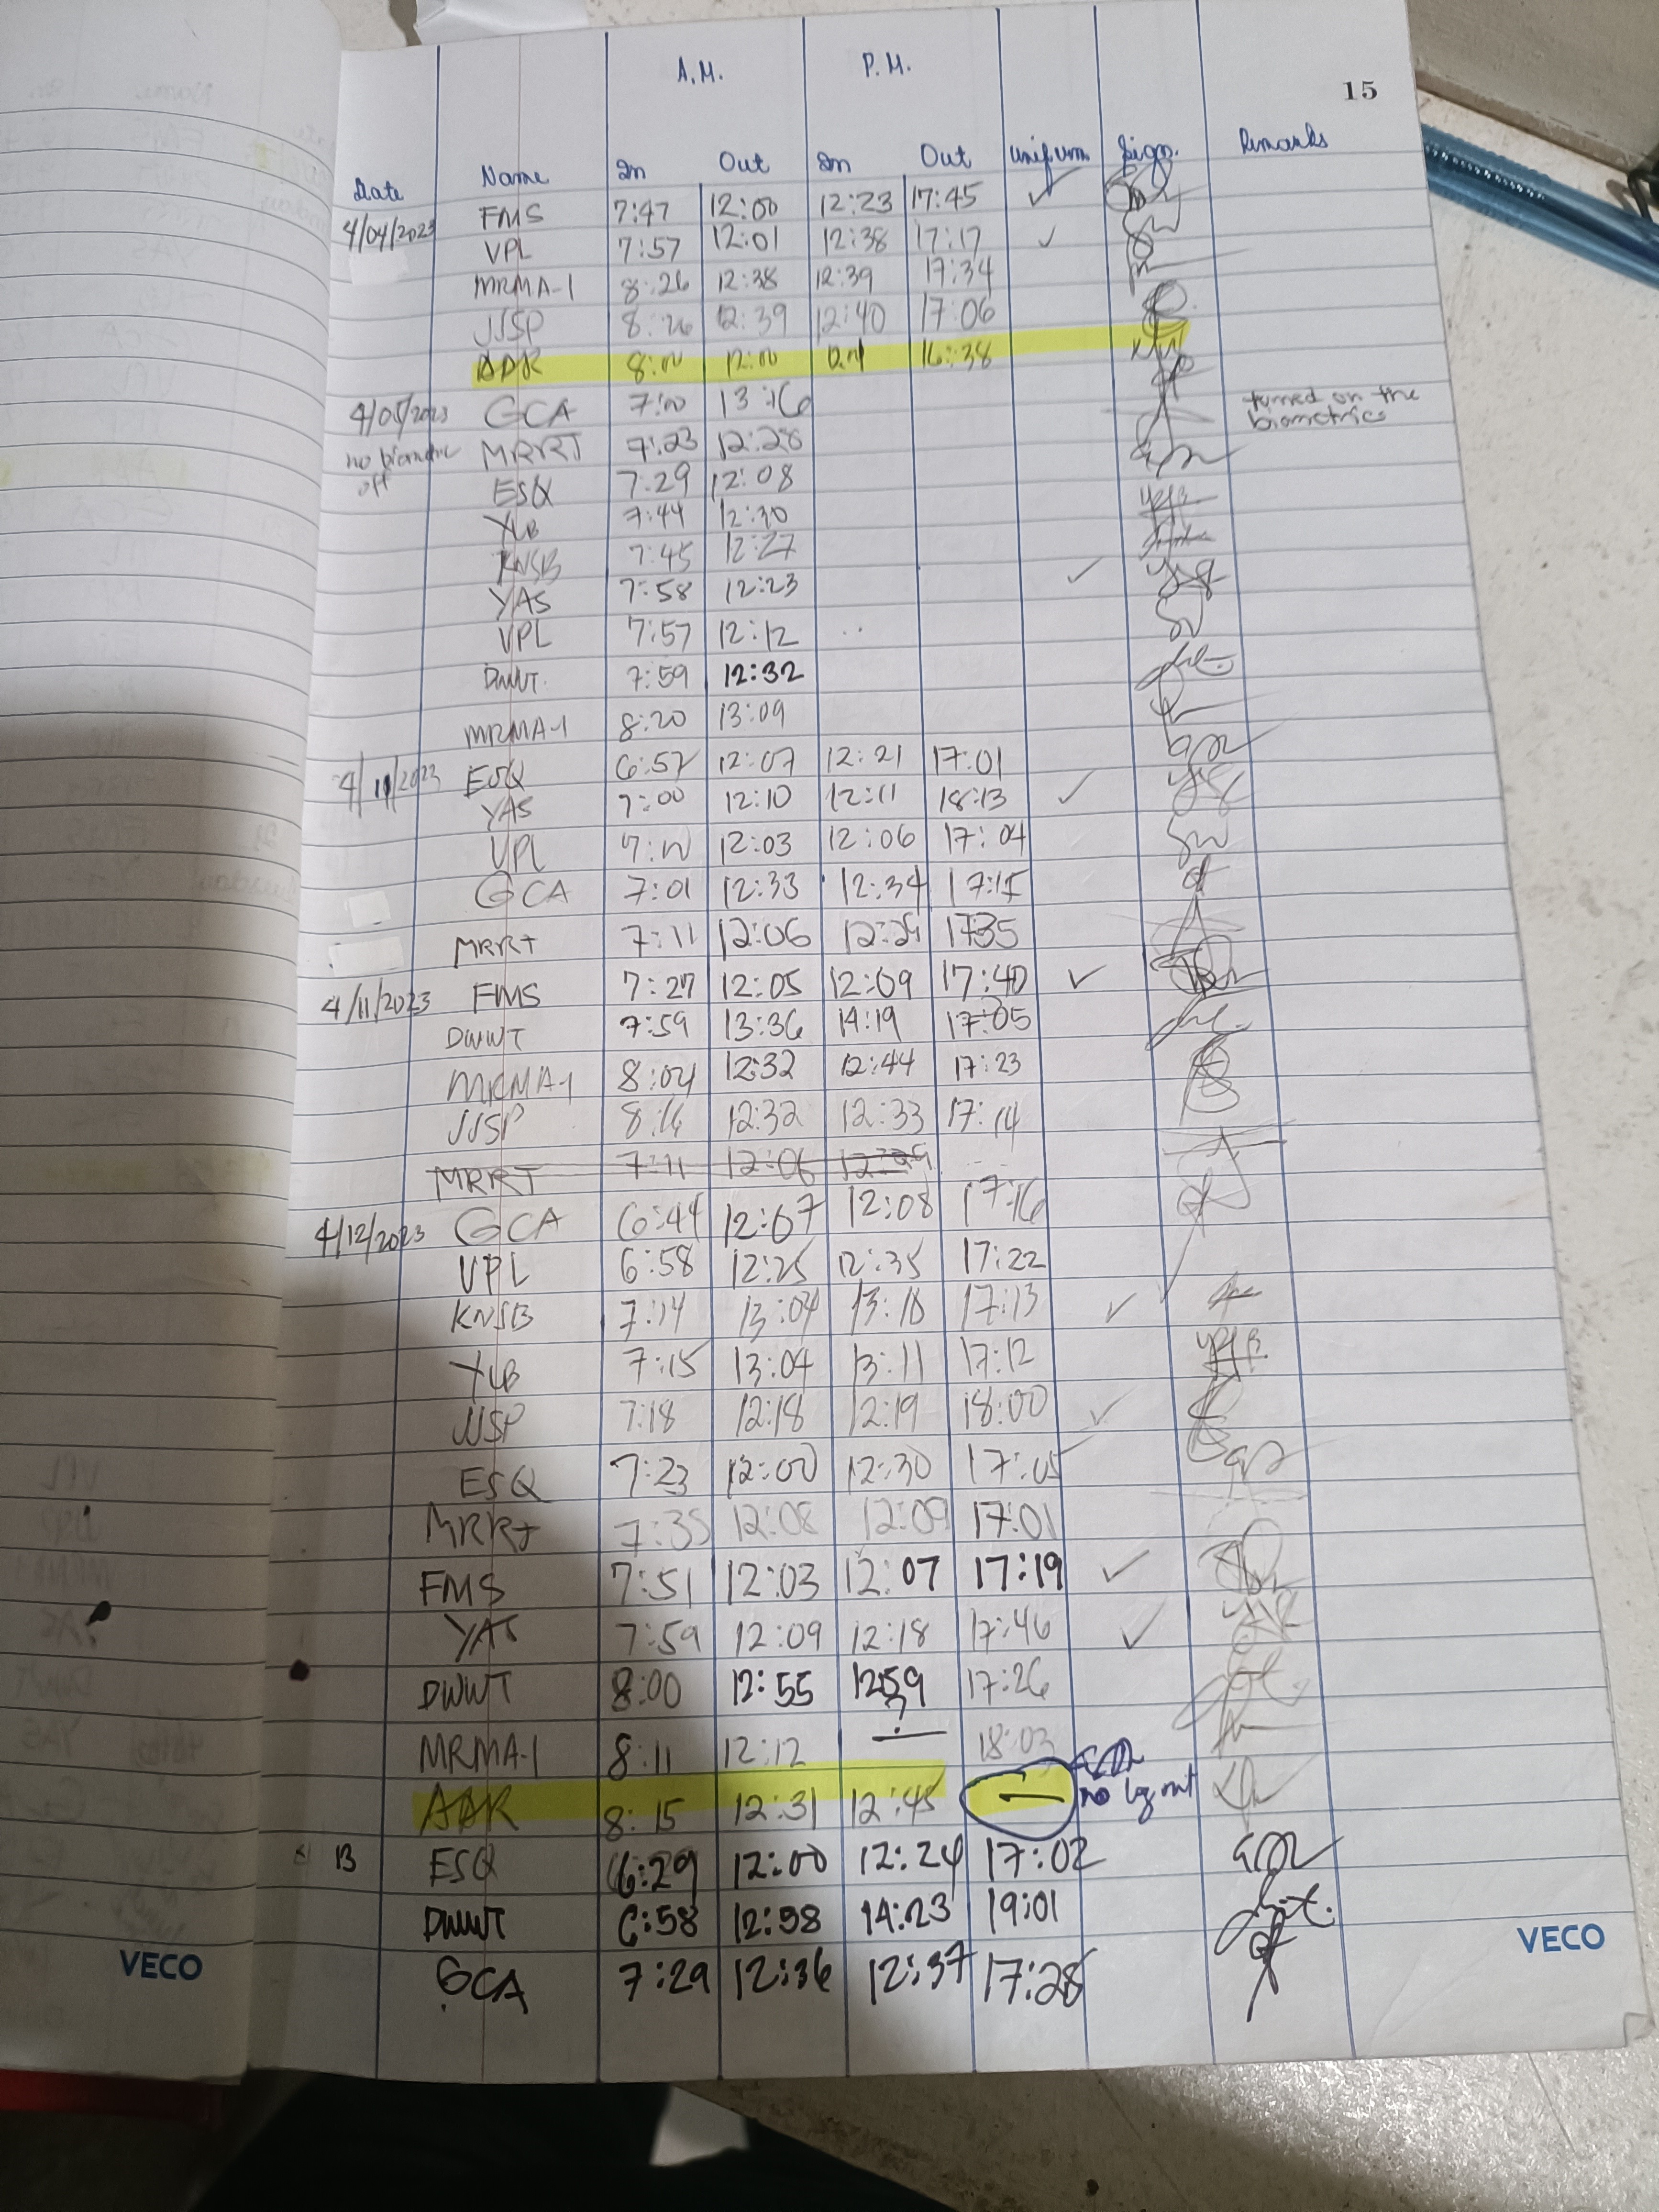 A.M. P.M.
15
Date Name In Out In Out Uniform Sign. Remarks
4/04/2023 FMS 7:47 12:00 12:23 17:45 ✓
VPL 7:57 12:01 12:38 17:17 ✓
MRMA-1 8:26 12:38 12:39 17:34
JJSP 8:26 12:39 12:40 17:06
ADR 8:00 12:00 16:38
4/05/2023 GCA 7:00 13:16 turned on the
no biometric MRRT 7:23 12:28 biometrics
off ESQ 7:29 12:08
YLB 7:44 12:30
KNSB 7:45 12:27
YAS 7:58 12:23 ✓
VPL 7:57 12:12
DWWT 7:59 12:32
MRMA-1 8:20 13:09
4/11/2023 ESQ 6:52 12:07 12:21 17:01
YAS 7:00 12:10 12:11 18:13 ✓
VPL 7:00 12:03 12:06 17:04
GCA 7:01 12:33 12:34 17:15
MRRT 7:11 12:06 12:29 1735
4/11/2023 FMS 7:27 12:05 12:09 17:40 ✓
DWWT 7:59 13:36 14:19 17:05
MRMA-1 8:04 12:32 12:44 17:23
JJSP 8:16 12:32 12:33 17:14
MRRT 7:11 12:06 12:29
4/12/2023 GCA 6:44 12:07 12:08 17:16
VPL 6:58 12:25 12:35 17:22
KNSB 7:14 13:04 13:10 17:13 ✓
YLB 7:15 13:04 13:11 17:12
JJSP 7:18 12:18 12:19 18:00 ✓
ESQ 7:23 12:00 12:30 17:05
MRRT 7:35 12:08 12:09 17:01
FMS 7:51 12:03 12:07 17:19 ✓
YAS 7:59 12:09 12:18 17:46 ✓
DWWT 8:00 12:55 12:59 17:26
MRMA-1 8:11 12:12 ? — 18:03
ADR 8:15 12:31 12:45 — no log out
13 ESQ 6:29 12:00 12:24 17:02
DWWT 6:58 12:58 14:23 19:01
GCA 7:29 12:36 12:37 17:28
VECO VECO